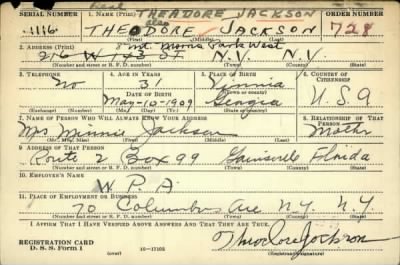 Real
SERIAL NUMBER 1. NAME (Print) THEODORE JACKSON ORDER NUMBER
also
1116 THEODORE JACKSON 728
(First) (Middle) (Last)
2. ADDRESS (Print) 8 mt. Morris Park West
216 W 143 ST N.Y. N.Y.
(Number and street or R. F. D. number) (Town) (County) (State)
3. TELEPHONE 4. AGE IN YEARS 5. PLACE OF BIRTH 6. COUNTRY OF CITIZENSHIP
no 31 Vennia
DATE OF BIRTH (Town or county)
May-10-1909 Georgia U.S.A
(Exchange) (Number) (Mo.) (Day) (Yr.) (State or country)
7. NAME OF PERSON WHO WILL ALWAYS KNOW YOUR ADDRESS 8. RELATIONSHIP OF THAT PERSON
Mrs Minnie Jackson Mother
(Mr., Mrs., Miss) (First) (Middle) (Last)
9. ADDRESS OF THAT PERSON
Route 2 Box 99 Gainsville Florida
(Number and street or R. F. D. number) (Town) (County) (State)
10. EMPLOYER'S NAME
W.P.A.
11. PLACE OF EMPLOYMENT OR BUSINESS
70 Columbus Ave N.Y. N.Y.
(Number and street or R. F. D. number) (Town) (County) (State)
I AFFIRM THAT I HAVE VERIFIED ABOVE ANSWERS AND THAT THEY ARE TRUE.
REGISTRATION CARD
D. S. S. Form 1 (over) 16-17105 Theodore Jackson
(Registrant's signature)